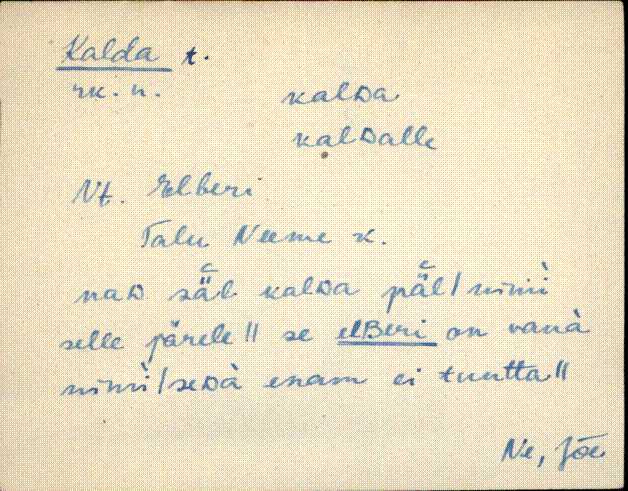 Kalda t.
rk. n.
kalDa
kalDalle
Vt. Elberi
Talu Neeme k.
naD sä̆l kalDa pä̆l / nimì
selle järele // se elBeri on vanà
nimì / seDà enam ei tuntta //
Ne, Jõe